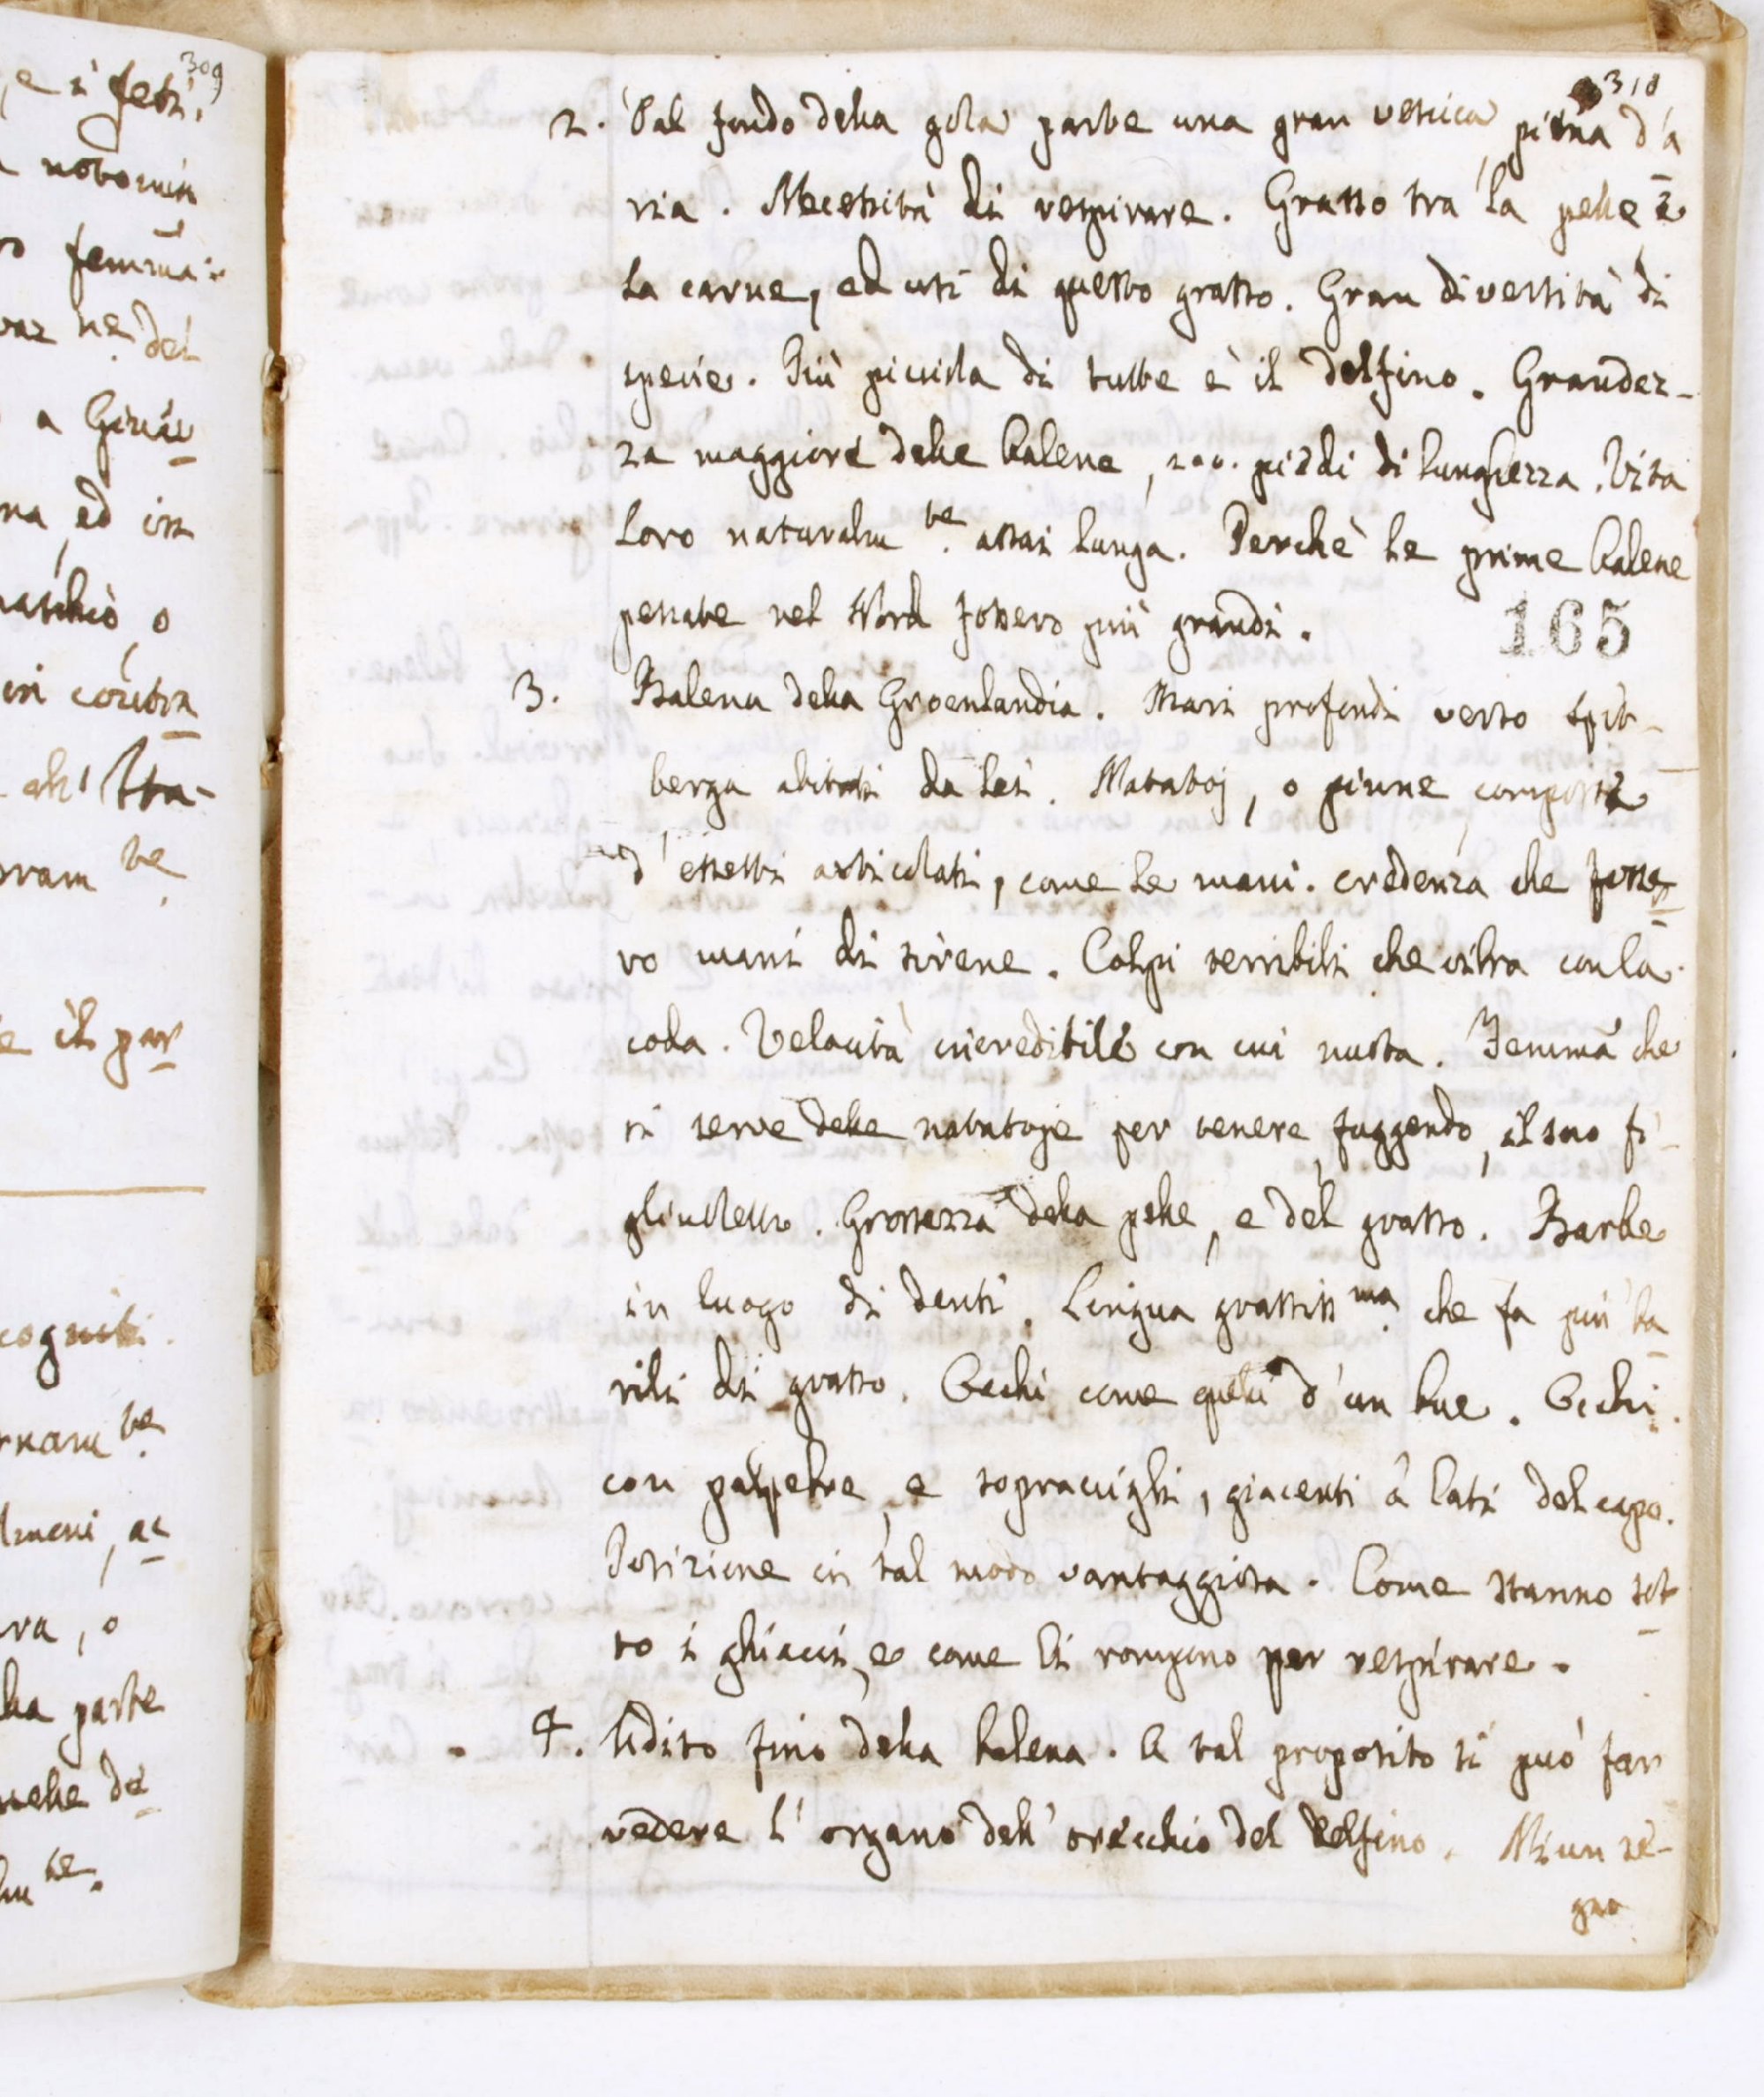 309
, e i feti,
notomia
femmi
ne del
a Giua
na, ed in
maschio, o
in contra
ell' Ita-
ram.te
e il par
cogniti.
rnam.te
lmoni, ac
va, o
lla parte
nelle de
lm.te
310
2. Dal fondo della gola parte una gran vescica piena d'a
ria. Necessità di respirare. Grasso tra la pelle e
la carne, ed usi di questo grasso. Gran diversità di
specie. Più piccola di tutte è il delfino. Grandez-
za maggiore delle balene, 200. piedi di lunghezza. Vita
loro naturalm.te assai lunga. Perchè le prime balene
pescate nel Nord fossero più grandi.
165
3. Balena della Groenlandia. Mari profondi verso Spit-
berga abitati da lei. Natatoj, o pinne composte
d'ossetti articolati, come le mani. credenza che fosse
ro mani di sirene. Colpi terribili che vibra con la
coda. Velocità incredibile con cui nuota. Femmã che
si serve delle natatoje per tenere, fuggendo, il suo fi-
gliuoletto. Grossezza della pelle, e del grasso. Barbe
in luogo di denti. Lingua grassiss.ma che fa più ba
rili di grasso. Occhi come quelli d'un bue. Occhi
con palpebre, e sopracigli, giacenti a lati del capo.
Posizione in tal modo vantaggiosa. Come stanno sot
to i ghiacci, e come li rompono per respirare.
4. Udito fino della balena. A tal proposito si può far
vedere l'organo dell'orecchio del delfino. Niun se-
gno